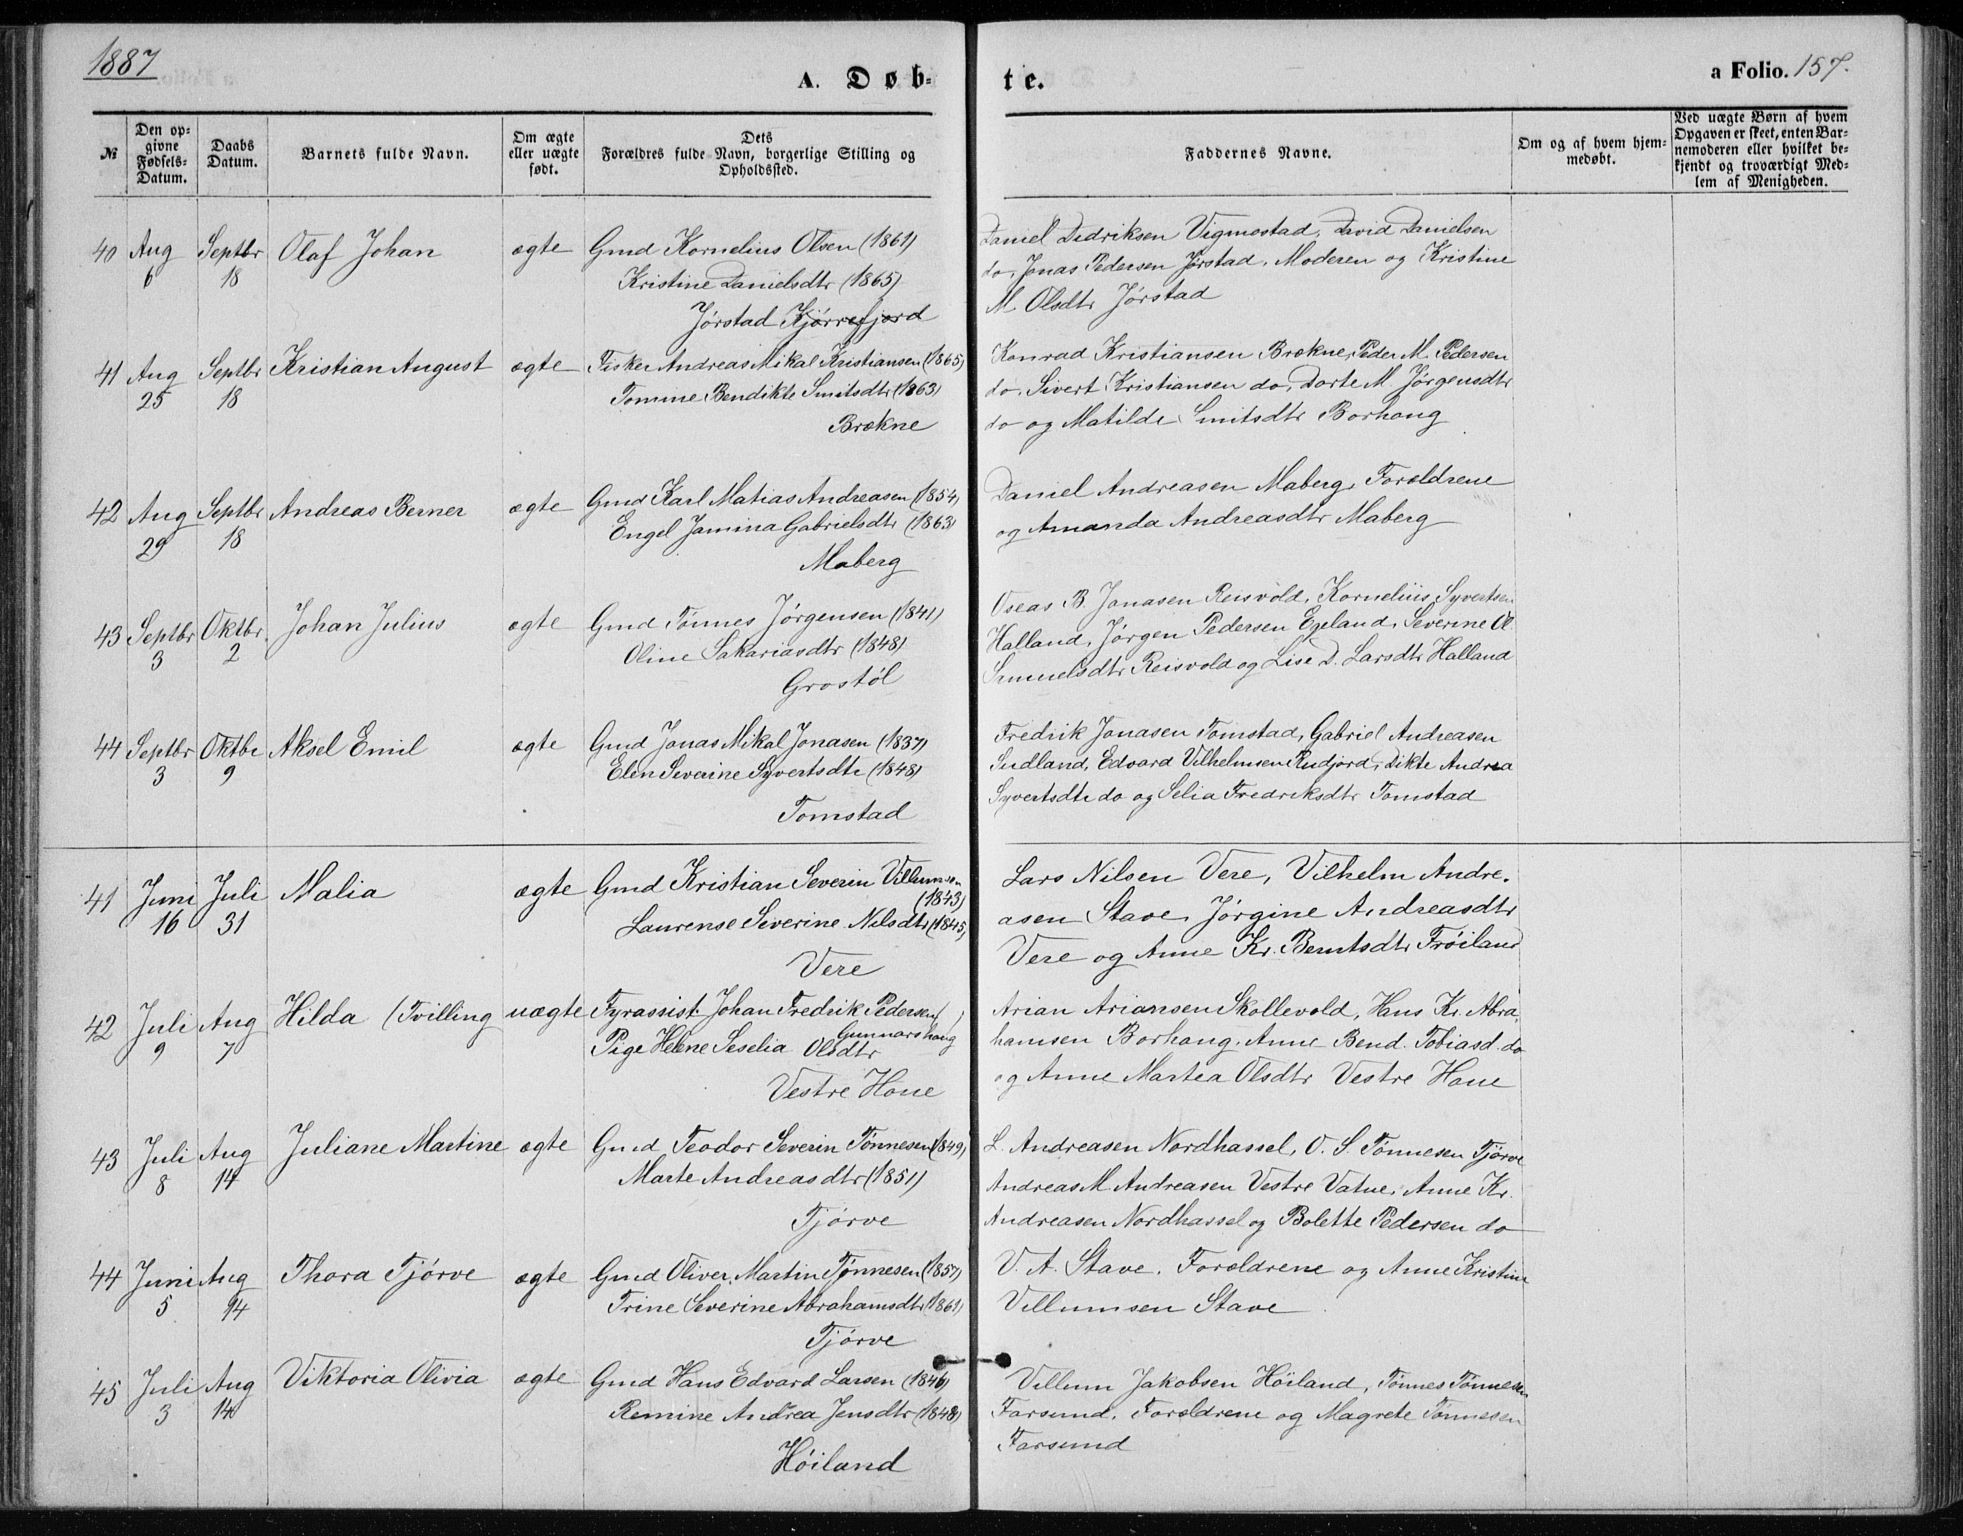 1887
A. Døb-
te.
a Folio. 157.
№
Den op-
givne
Fødsels-
Datum.
Daabs
Datum.
Barnets fulde Navn.
Om ægte
eller uægte
født.
Dets
Forældres fulde Navn, borgerlige Stilling og
Opholdssted.
Faddernes Navne.
Om og af hvem hjem-
medøbt.
Ved uægte Børn af hvem
Opgaven er skeet, enten Bar-
nemoderen eller hvilket be-
kjendt og troværdigt Med-
lem af Menigheden.
40 Aug 6 Septbr 18 Olaf Johan ægte Gmd Kornelius Olsen (1861)
Kristine Danielsdtr (1865)
Jørstad Kjørrefjord
Daniel Didriksen Vigmostad, David Danielsen
do, Jonas Pedersen Jørstad, Moderen og Kristine
M. Olsdtr Jørstad
41 Aug 25 Septbr 18 Kristian August ægte Fisker Andreas Mikal Kristiansen (1865)
Tomine Bendikte Smitsdtr (1863)
Brækne
Konrad Kristiansen Brækne, Peder M. Pedersen
do, Sivert Kristiansen do, Dorte M. Jørgensdtr
do og Matilde Smitsdtr Borhaug
42 Aug 29 Septbr 18 Andreas Berner ægte Gmd Karl Matias Andreasen (1854)
Engel Jamina Gabrielsdtr (1863)
Maberg
Daniel Andreasen Maberg, Forældrene
og Amanda Andreasdtr Maberg
43 Septbr 3 Oktbr. 2 Johan Julius ægte Gmd Tønnes Jørgensen (1841)
Oline Sakariasdtr (1848)
Grostøl
Oseas B. Jonasen Reisvold, Kornelius Syvertsen
Halland, Jørgen Pedersen Egeland, Severine Ol.
Samuelsdtr Reisvold og Lise D. Larsdtr Halland
44 Septbr 3 Oktbr 9 Aksel Emil ægte Gmd Jonas Mikal Jonasen (1837)
Elen Severine Syvertsdtr (1848)
Tomstad
Fredrik Jonasen Tomstad, Gabriel Andreasen
Sudland, Edvard Vilhelmsen Rudjord, Dikte Andrea
Syvertsdtr do og Selia Fredriksdtr Tomstad
41 Juni 16 Juli 31 Malia ægte Gmd Kristian Severin Villumsen
(1843)
Laurense Severine Nilsdtr (1845)
Vere
Lars Nilsen Vere, Vilhelm Andre-
asen Stave, Jørgine Andreasdtr
Vere og Anne Kr. Berntsdtr Frøiland
42 Juli 9 Aug 7 Hilda (Tvilling uægte Fyrassist. Johan Fredrik Pedersen
Gunnarshaug
Pige Helene Seselia Olsdtr
Vestre Haue
Arian Ariansen Skollevold, Hans Kr. Abra-
hamsen Borhaug, Anne Bend. Tobiasd. do
og Anne Martea Olsdtr Vestre Haue
43 Juli 8 Aug 14 Juliane Martine ægte Gmd Teodor Severin Tønnesen (1849)
Marte Andreasdtr (1851)
Tjørve
L. Andreasen Nordhassel, O. S. Tønnesen Tjørve
Andreas M. Andreasen Vestre Vatne, Anne Kr.
Andreasen Nordhassel og Bolette Pedersen do
44 Juni 5 Aug 14 Thora Tjørve ægte Gmd Oliver Martin Tønnesen (1857)
Trine Severine Abrahamsdtr (1861)
Tjørve
V. A. Stave, Forældrene og Anne Kristine
Villumsen Stave
45 Juli 3 Aug 14 Viktoria Olivia ægte Gmd Hans Edvard Larsen (1846)
Remine Andrea Jensdtr (1848)
Høiland
Villum Jakobsen Høiland, Tønnes Tønnesen
Farsund, Forældrene og Magrete Tønnesen
Farsund